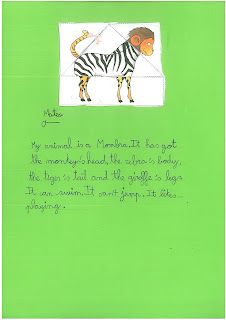 Mateo
My animal is a Monbra. It has got
the monkey's head, the zebra's body,
the tiger's tail and the giraffe's legs.
It can swim. It can't jump. It likes
playing.